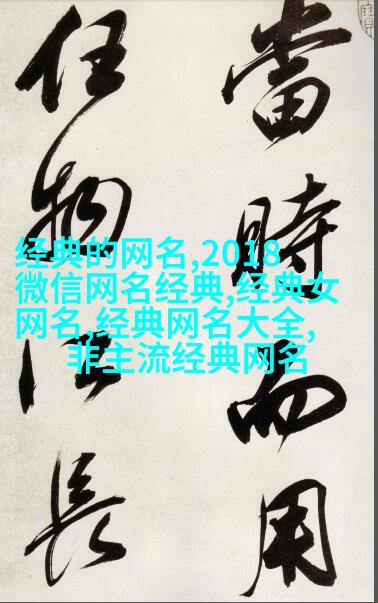 當時而用
任物長
经典的网名,2018
微信网名经典,经典女
网名,经典网名大全,
非主流经典网名